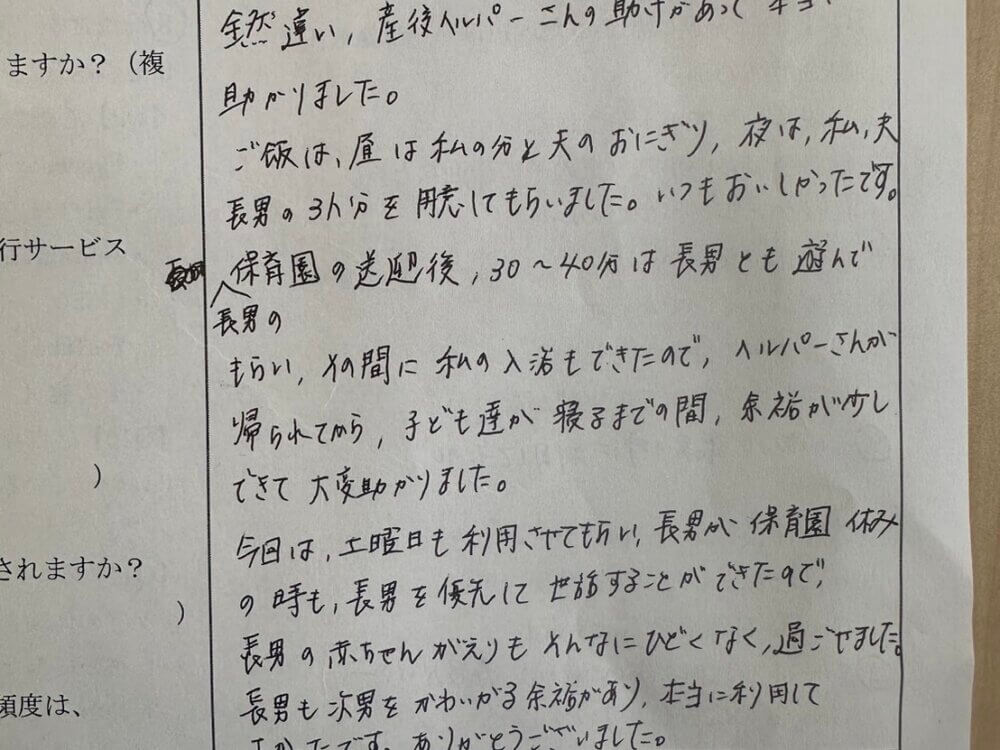 全然違い、産後ヘルパーさんの助けがあって本当に
ますか？（複
助かりました。
ご飯は、昼は私の分と夫のおにぎり、夜は、私、夫
長男の3人分を用意してもらいました。いつもおいしかったです。
行サービス
保育園の送迎後、30～40分は長男とも遊んで
長男の
もらい、その間に私の入浴もできたので、ヘルパーさんが
帰られてから、子ども達が寝るまでの間、余裕が少し
)
できて大変助かりました。
今回は、土曜日も利用させてもらい、長男が保育園休み
されますか？
の時も、長男を優先して世話することができたので、
)
長男の赤ちゃんがえりもそんなにひどくなく、過ごせました。
頻度は、
長男も次男をかわいがる余裕があり、本当に利用して
よかったです。ありがとうございました。